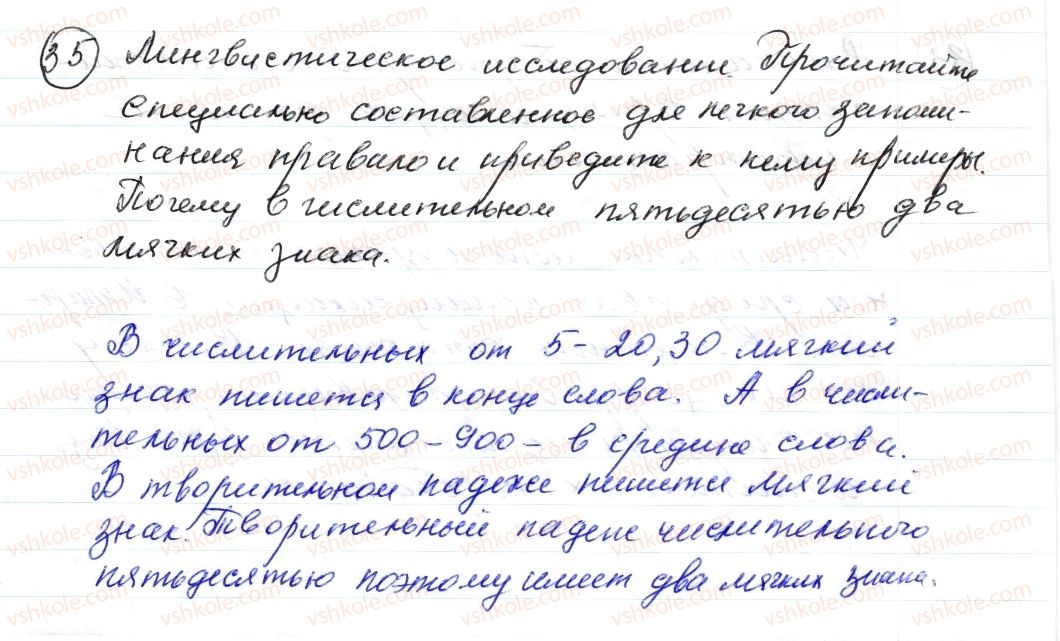 35 Лингвистическое исследовании. Прочитайте
специально составленное для легкого запоми-
нания правало и приведите к нему примеры.
Почему в числительном пятьдесятью два
мягких знака.
В числительных от 5-20,30 мягкий
знак пишется в конце слова. А в числи-
тельных от 500-900- в средине слова.
В творительном падеже пишется мягкий
знак. Творительный падеж числительного
пятьдесятью поэтому имеет два мягких знака.